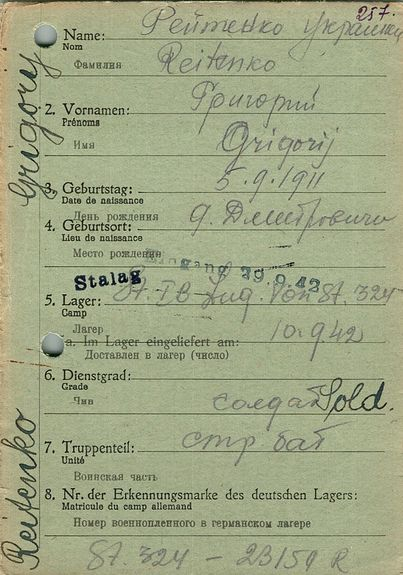 257.
Name: Рейтенко украинец
Nom
Фамилия Reitenko
2. Vornamen: Григорий
Prénoms
Имя Grigorij
3. Geburtstag: 5.9.1911
Date de naissance
День рождения
4. Geburtsort: д. Дмитровичи
Lieu de naissance
Место рождения
Eingang 29.9.42
Stalag
5. Lager: St. IB Zug. von St. 324
Camp
Лагер 10.9.42
a. Im Lager eingeliefert am:
Доставлен в лагер (число)
6. Dienstgrad:
Grade
Чин солдат Sold.
7. Truppenteil: стр бат
Unité
Воинская часть
8. Nr. der Erkennungsmarke des deutschen Lagers:
Matricule du camp allemand
Номер военнопленного в германском лагере
St. 324 - 23159 R
Reitenko Grigorij